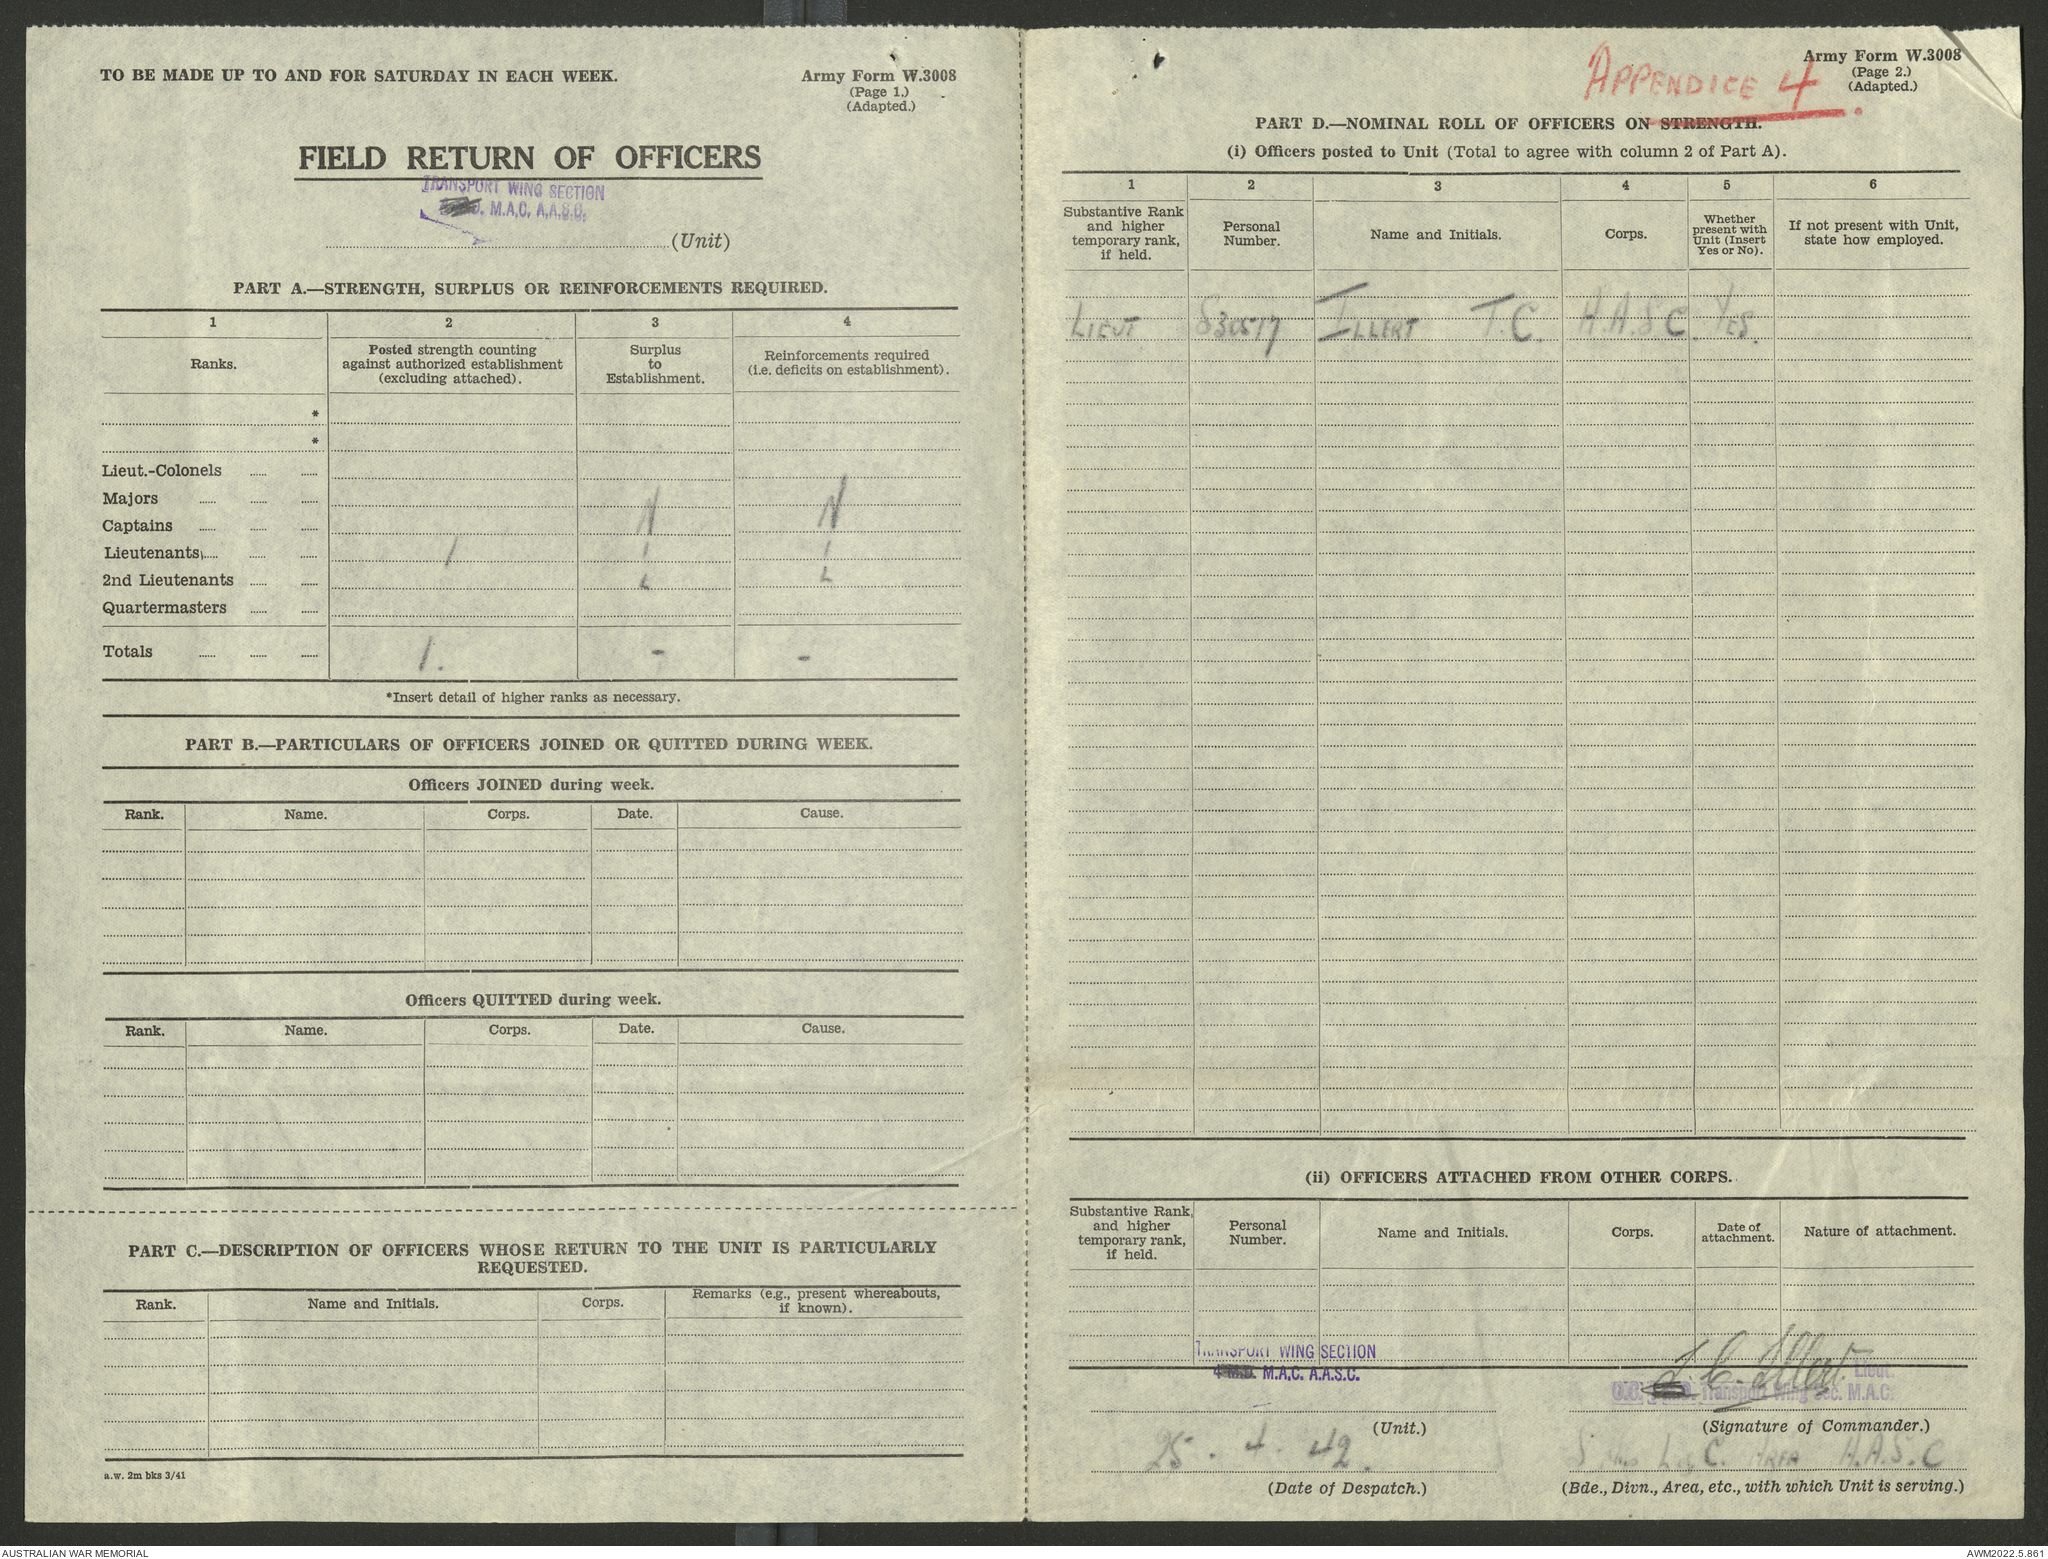 TO BE MADE UP TO AND FOR SATURDAY IN EACH WEEK.
Army Form W.3008
(Page 1.)
(Adapted.)
FIELD RETURN OF OFFICERS
TRANSPORT WING SECTION
M.A.C. A.A.S.C.
(Unit)
PART A.—STRENGTH, SURPLUS OR REINFORCEMENTS REQUIRED.
1 2 3 4
Ranks. Posted strength counting against authorized establishment (excluding attached). Surplus to Establishment. Reinforcements required (i.e. deficits on establishment).
*
*
Lieut.-Colonels
Majors
Captains N N
Lieutenants 1 I I
2nd Lieutenants L L
Quartermasters
Totals 1. - -
*Insert detail of higher ranks as necessary.
PART B.—PARTICULARS OF OFFICERS JOINED OR QUITTED DURING WEEK.
Officers JOINED during week.
Rank. Name. Corps. Date. Cause.
Officers QUITTED during week.
Rank. Name. Corps. Date. Cause.
PART C.—DESCRIPTION OF OFFICERS WHOSE RETURN TO THE UNIT IS PARTICULARLY
REQUESTED.
Rank. Name and Initials. Corps. Remarks (e.g., present whereabouts, if known).
a.w. 2m bks 3/41
APPENDICE 4
Army Form W.3008
(Page 2.)
(Adapted.)
PART D.—NOMINAL ROLL OF OFFICERS ON STRENGTH.
(i) Officers posted to Unit (Total to agree with column 2 of Part A).
1 2 3 4 5 6
Substantive Rank and higher temporary rank, if held. Personal Number. Name and Initials. Corps. Whether present with Unit (Insert Yes or No). If not present with Unit, state how employed.
LIEUT S30517 ILLERT T.C. A.A.S.C. YES.
(ii) OFFICERS ATTACHED FROM OTHER CORPS.
Substantive Rank, and higher temporary rank, if held. Personal Number. Name and Initials. Corps. Date of attachment. Nature of attachment.
TRANSPORT WING SECTION
4 M.D. M.A.C. A.A.S.C.
(Unit.)
T. C. Illert. Lieut.
O.C. Transport Wing Sec. M.A.C.
(Signature of Commander.)
25. 4. 42.
(Date of Despatch.)
L of C. AREA A.A.S.C
(Bde., Divn., Area, etc., with which Unit is serving.)
AUSTRALIAN WAR MEMORIAL
AWM2022.5.861